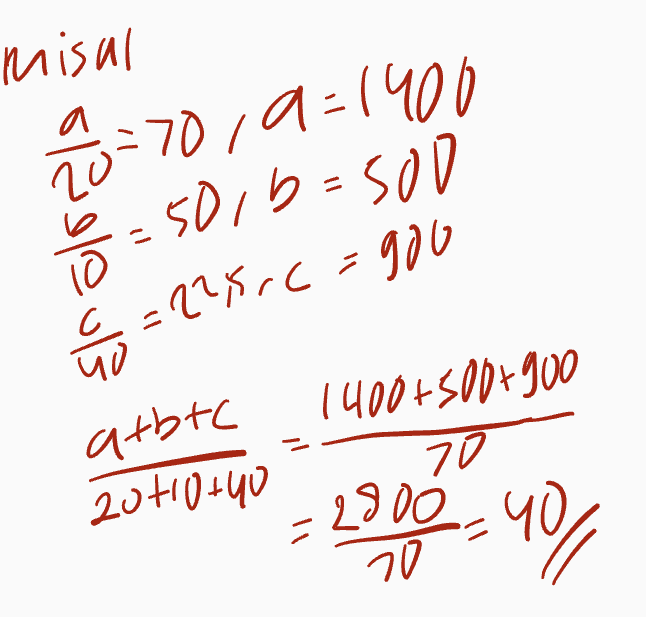 misal
a/20 = 70, a = 1400
b/10 = 50, b = 500
c/40 = 22,5, c = 900
a+b+c/20+10+40 = 1400+500+900/70
= 2800/70 = 40//